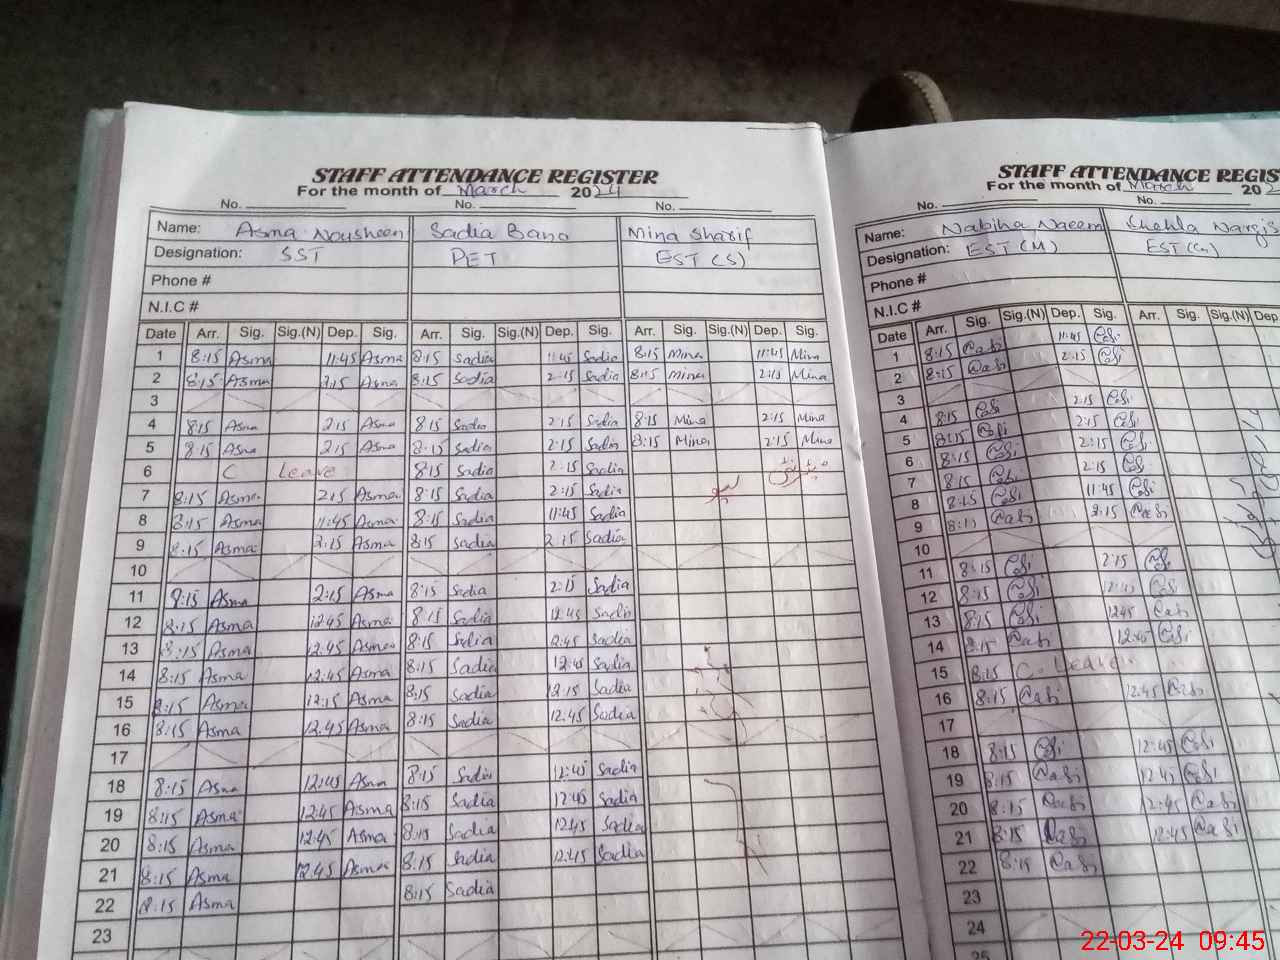 STAFF ATTENDANCE REGISTER
For the month of March 2024
No. No. No.
Name: Asma Nousheen Sadia Bano Mina Sharif
Designation: SST PET EST (S)
Phone #
N.I.C #
Date Arr. Sig. Sig.(N) Dep. Sig. Arr. Sig. Sig.(N) Dep. Sig. Arr. Sig. Sig.(N) Dep. Sig.
1 8:15 Asma 11:45 Asma 8:15 Sadia 11:45 Sadia 8:15 Mina 11:45 Mina
2 8:15 Asma 2:15 Asma 8:15 Sadia 2:15 Sadia 8:15 Mina 2:15 Mina
3
4 8:15 Asma 2:15 Asma 8:15 Sadia 2:15 Sadia 8:15 Mina 2:15 Mina
5 8:15 Asma 2:15 Asma 8:15 Sadia 2:15 Sadia 8:15 Mina 2:15 Mina
6 C Leave 8:15 Sadia 2:15 Sadia
7 8:15 Asma 2:15 Asma 8:15 Sadia 2:15 Sadia
8 8:15 Asma 11:45 Asma 8:15 Sadia 11:45 Sadia
9 8:15 Asma 2:15 Asma 8:15 Sadia 2:15 Sadia
10
11 8:15 Asma 2:15 Asma 8:15 Sadia 2:15 Sadia
12 8:15 Asma 12:45 Asma 8:15 Sadia 12:45 Sadia
13 8:15 Asma 12:45 Asma 8:15 Sadia 12:45 Sadia
14 8:15 Asma 12:45 Asma 8:15 Sadia 12:45 Sadia
15 8:15 Asma 12:15 Asma 8:15 Sadia 12:15 Sadia
16 8:15 Asma 12:45 Asma 8:15 Sadia 12:45 Sadia
17
18 8:15 Asma 12:45 Asma 8:15 Sadia 12:45 Sadia
19 8:15 Asma 12:45 Asma 8:15 Sadia 12:45 Sadia
20 8:15 Asma 12:45 Asma 8:15 Sadia 12:45 Sadia
21 8:15 Asma 12:45 Asma 8:15 Sadia 12:45 Sadia
22 8:15 Asma 8:15 Sadia
23
STAFF ATTENDANCE REGIS
For the month of March 202
No. No.
Name: Nabiha Naeem Shehla Nargis
Designation: EST (M) EST (G)
Phone #
N.I.C #
Date Arr. Sig. Sig.(N) Dep. Sig. Arr. Sig. Sig.(N) Dep
1 8:15 11:45
2 8:15 2:15
3
4 8:15 2:15
5 8:15 2:15
6 8:15 2:15
7 8:15 2:15
8 8:15 11:45
9 8:15 2:15
10
11 8:15 2:15
12 8:15 12:45
13 8:15 12:45
14 8:15 12:45
15 8:15 C. Leave
16 8:15 12:45
17
18 8:15 12:45
19 8:15 12:45
20 8:15 12:45
21 8:15 12:45
22 8:15
23
24
25
22-03-24 09:45